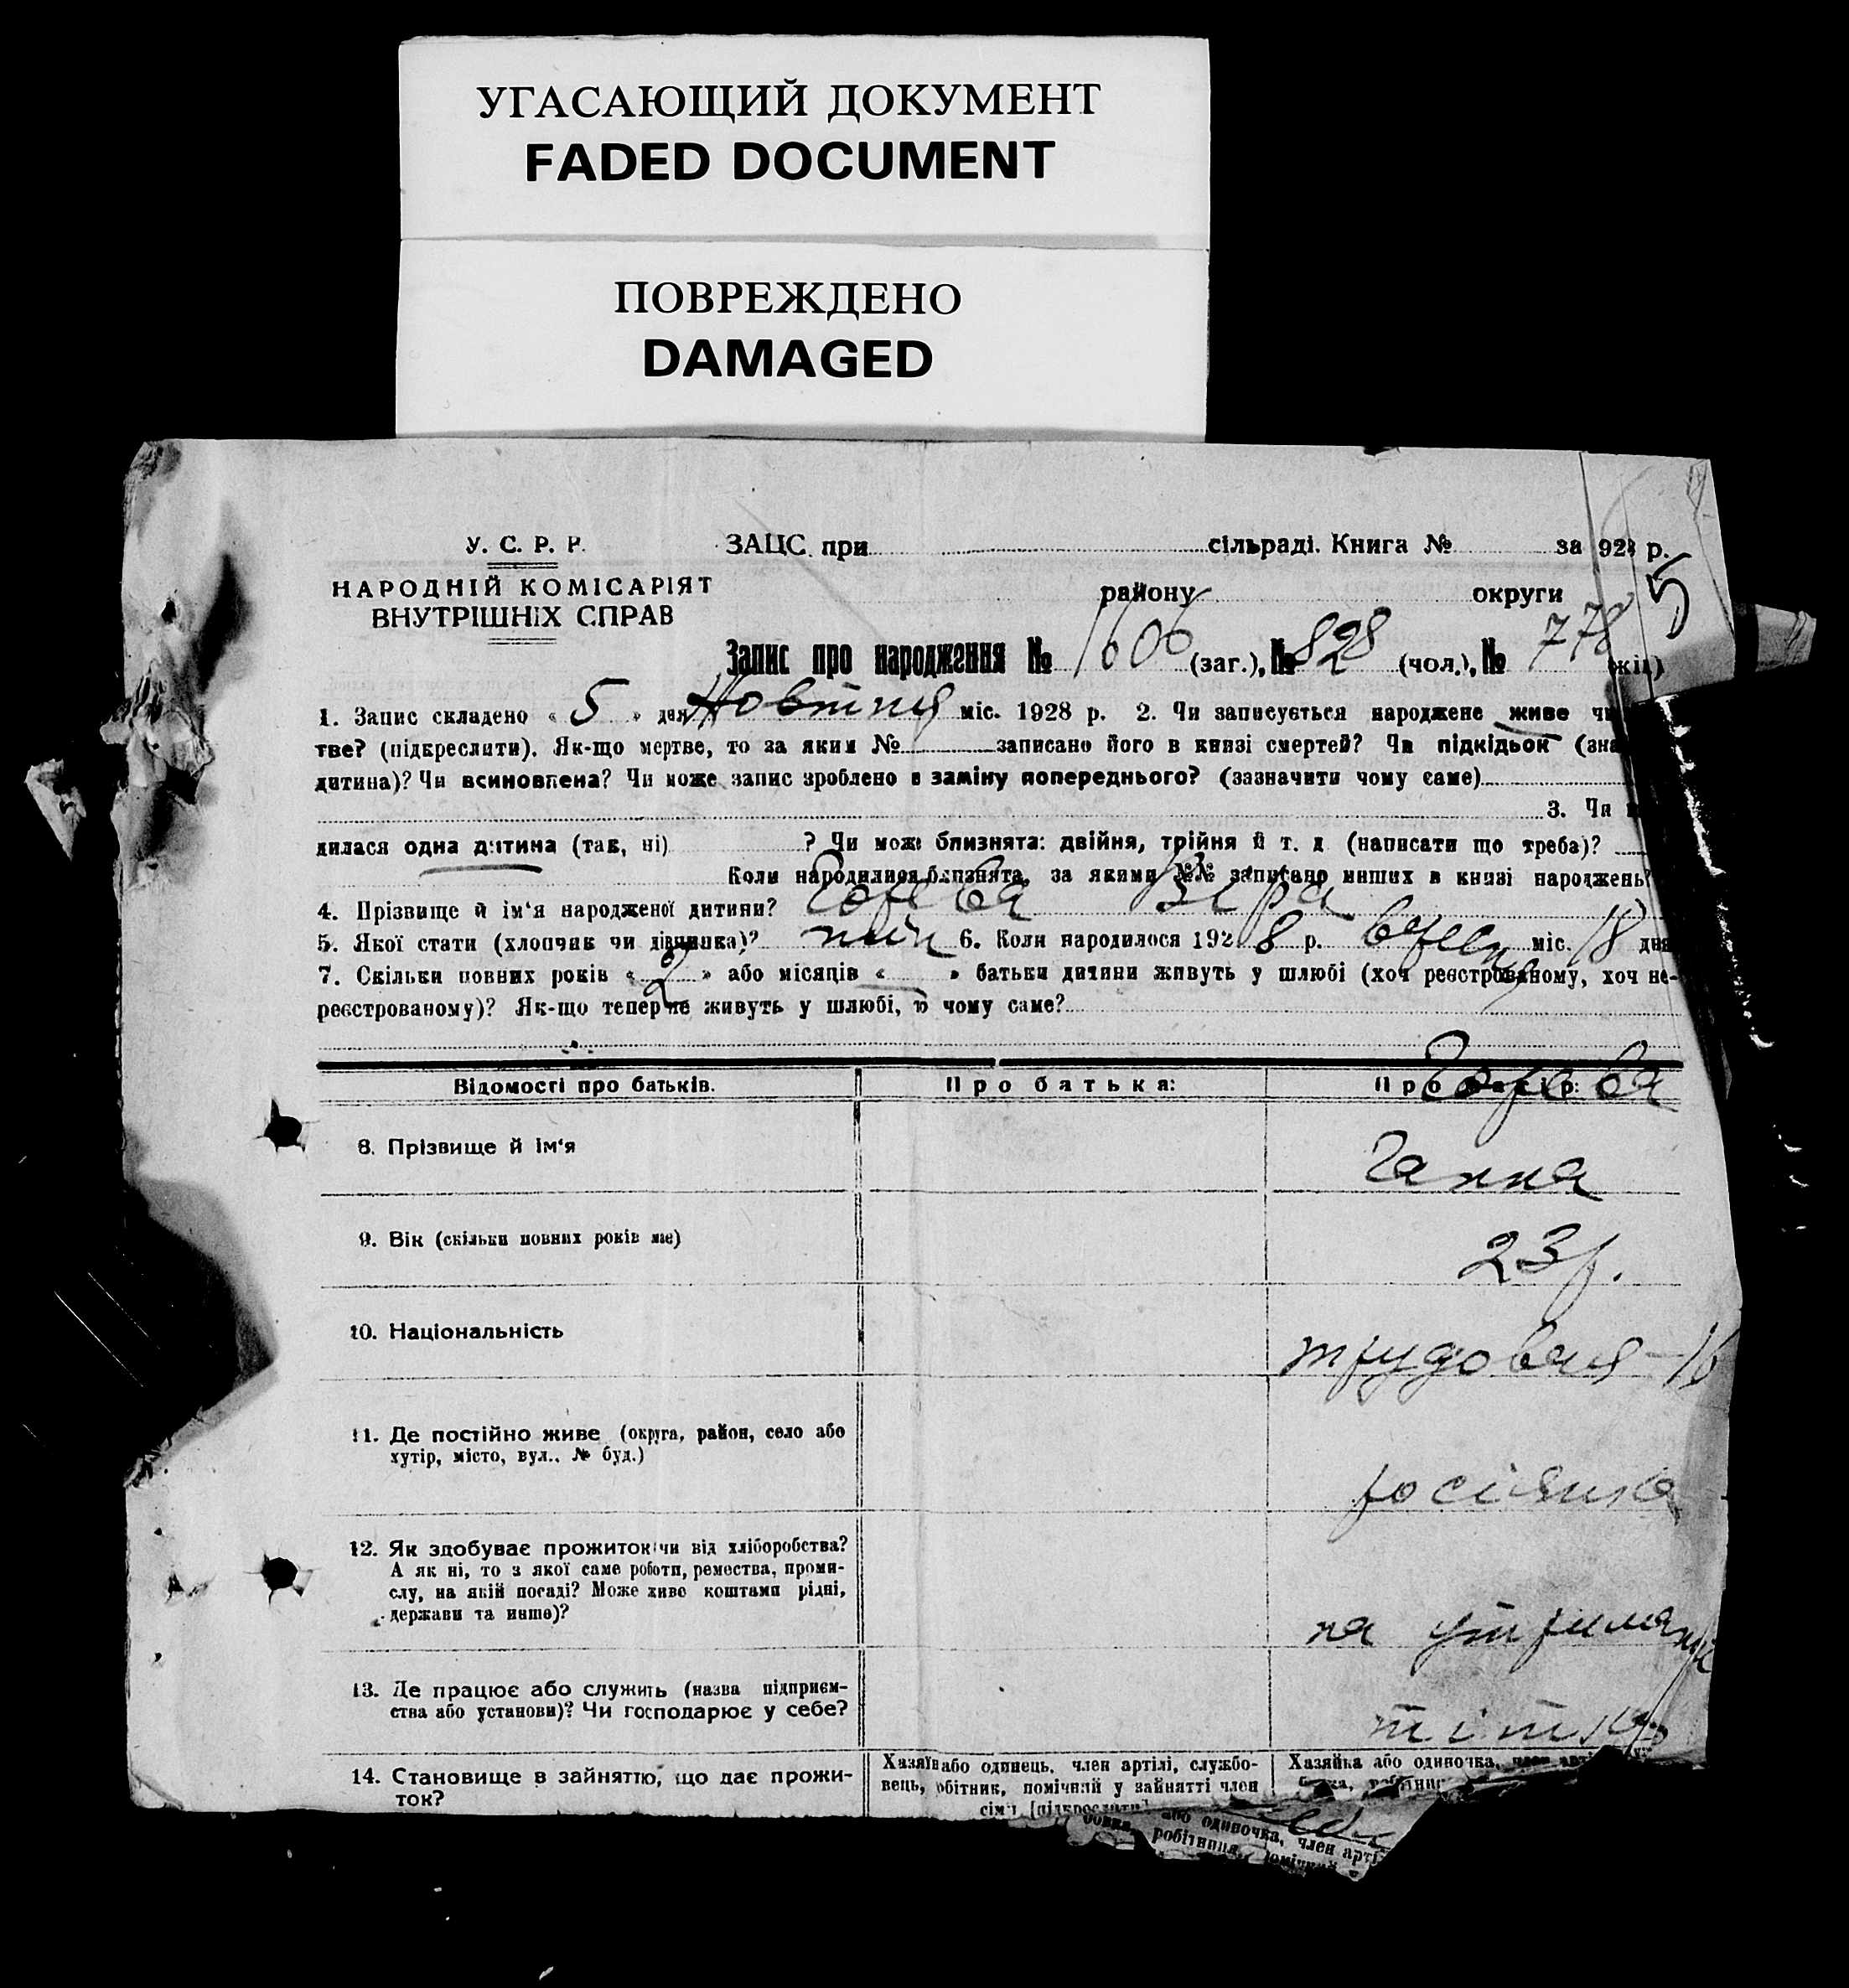 УГАСАЮЩИЙ ДОКУМЕНТ
FADED DOCUMENT
ПОВРЕЖДЕНО
DAMAGED
У. С. Р. Р.
НАРОДНІЙ КОМІСАРІЯТ
ВНУТРІШНІХ СПРАВ
ЗАЦС при сільраді. Книга № за 928 р.
51
району округи
Запис про народження № 1606 (заг.), № 828 (чол.), № 778 (жін.)
1. Запис складено « 5 » дня Жовтня міс. 1928 р. 2. Чи записується народжене живе чи
тве? (підкреслити). Як-що мертве, то за яким № записано його в книзі смертей? Чи підкідьок (зна
дитина)? Чи всиновлена? Чи може запис зроблено в заміну попереднього? (зазначити чому саме)
3. Чи
дилася одна дитина (так, ні) ? Чи може близнята: двійня, трійня й т. д. (написати що треба)?
Коли народилися близнята, за якими №№ записано инших в книзі народжень?
4. Прізвище й ім'я народженої дитини? Віра
5. Якої стати (хлопчик чи дівчинка)? жін 6. Коли народилося 1928 р. вересня міс. 18 дня
7. Скільки повних років « 2 » або місяців « » батьки дитини живуть у шлюбі (хоч реєстрованому, хоч не-
реєстрованому)? Як-що тепер не живуть у шлюбі, то чому саме?
Відомості про батьків. Про батька: Про матір:
8. Прізвище й ім'я
Ганна
9. Вік (скільки повних років має) 23 р.
10. Національність трудовая - 16
11. Де постійно живе (округа, район, село або
хутір, місто, вул., № буд.)
росіянка
12. Як здобуває прожиток (чи від хліборобства?
А як ні, то з якої саме роботи, ремества, проми-
слу, на якій посаді? Може живе коштами рідні,
держави та инше)?
на утриманні
13. Де працює або служить (назва підприєм-
ства або установи)? Чи господарює у себе?
тітки
14. Становище в зайняттю, що дає прожи-
ток?
Хазяїн або одинець, член артілі, службо-
вець, робітник, помічний у зайнятті член
сім'ї [підкреслити]
Хазяйка або одиночка, член артілі
або одиночка, член арті
робітниця,